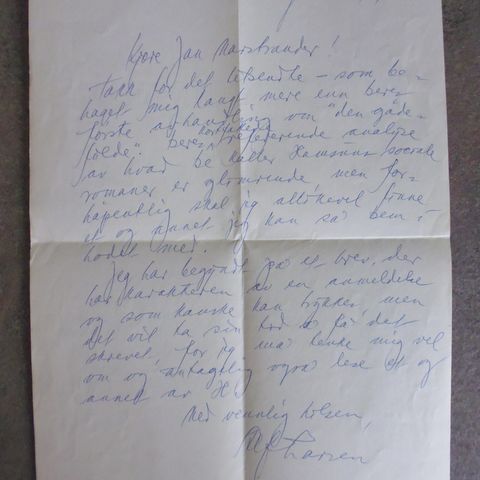 Kjære Jan Marstrander!
Takk for det tilsendte – som be-
haget mig langt mere enn Deres
første avhandling om "den gåde-
fulde". Deres kortfattede refererende analyse
av hvad De kaller Hamsuns sociale
romaner er glimrende men for-
håpentlig skal jeg allikevel finne
et og annet jeg kan så bem
med.
Jeg har begyndt på et brev, der
har karakteren av en anmeldelse
og som kanske kan trykkes, men
det vil ta sin tid å få det
skrevet, for jeg må tenke mig vel
om og antagelig også lese et og
annet av
Med vennlig hilsen,
Alf Larsen